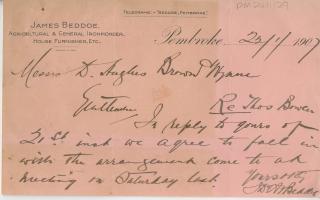 DM2011/29
JAMES BEDDOE,
AGRICULTURAL & GENERAL IRONMONGER,
HOUSE FURNISHER, ETC.
TELEGRAMS:- "BEDDOE, PEMBROKE."
Pembroke 1907
Messrs D. Hughes Brown & Wynne
Gentlemen
Re Thos Bowen
In reply to yours of
21st inst we agree to fall in
with the arrangement come to at
meeting on Saturday last.
Yours